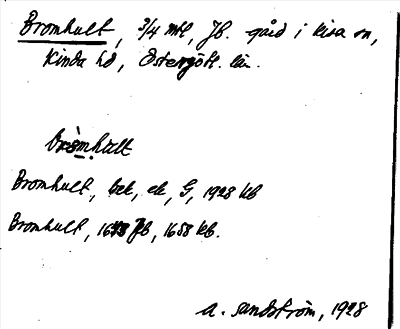 Bromhult, 3/4 mtl, Jb. gård i Kisa sn,
Kinda hd, Östergötl. län.
bròmhult
Bromhult, bek, ek, G, 1928 kb
Bromhult, Jb, 1658 kb.
A. Sandström, 1928